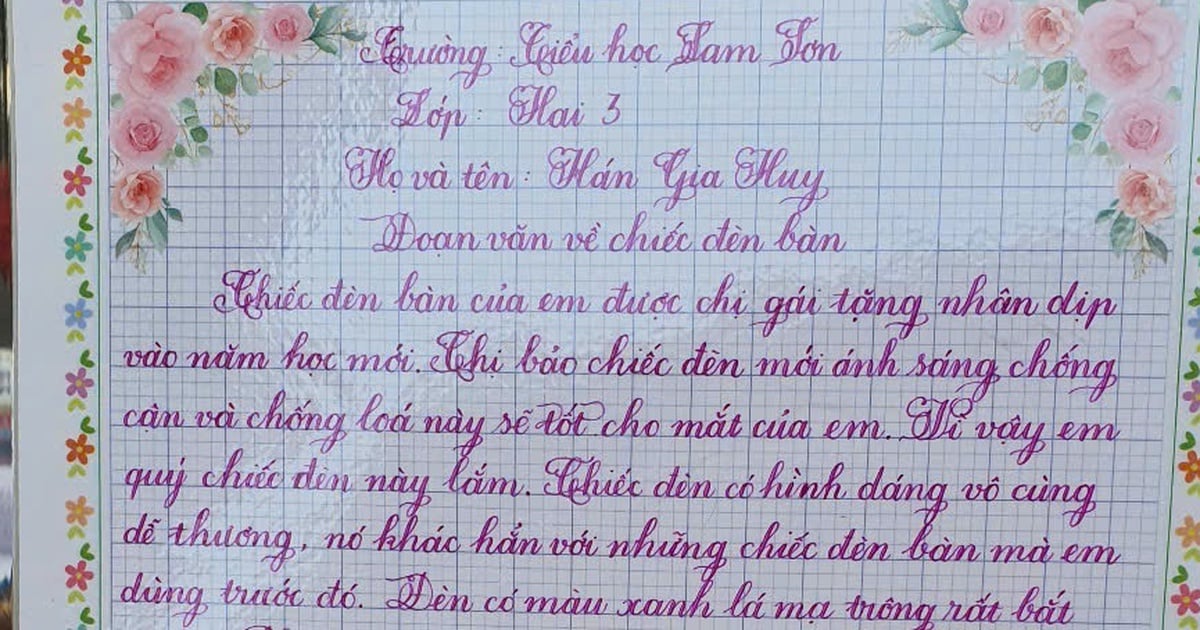 Trường: Tiểu học Tam Sơn
Lớp: Hai 3
Họ và tên: Hán Gia Huy
Đoạn văn về chiếc đèn bàn
Chiếc đèn bàn của em được chị gái tặng nhân dịp
vào năm học mới. Chị bảo chiếc đèn mới ánh sáng chống
cận và chống loá này sẽ tốt cho mắt của em. Vì vậy em
quý chiếc đèn này lắm. Chiếc đèn có hình dáng vô cùng
dễ thương, nó khác hẳn với những chiếc đèn bàn mà em
dùng trước đó. Đèn có màu xanh lá mạ trông rất bắt